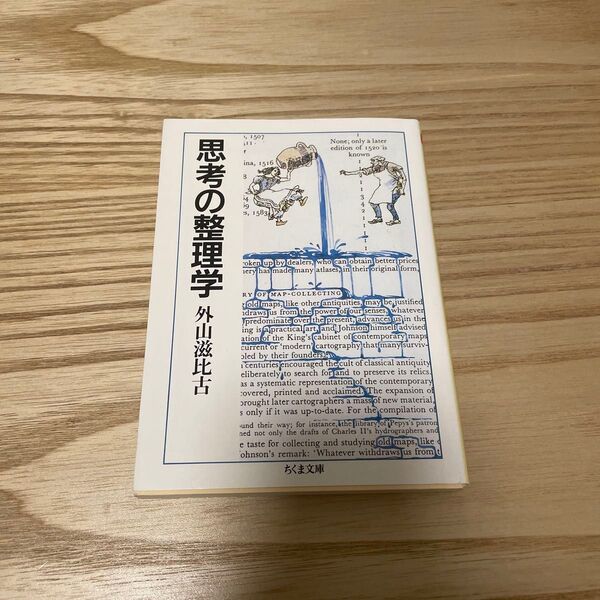 思考の整理学
外山滋比古
1507
1516
1583
None; only a later
edition of 1520 is
known
1
1
3
4
2
1
1
oken up by dealers, who can obtain better prices
ery has made many atlases, in their original form,
RY OF MAP-COLLECTING
old maps, like other antiquities, may be justified
draws us from the power of our senses, whatever
predominate over the present, advances us in the
ing is practical art, and Johnson himself advised
ation of the King's cabinet of contemporary maps
current or 'modern' cartography that many surviv-
pled by their founders
n centuries encouraged the cult of classical antiquity
eliberately to search for and to preserve its relics.
as a systematic representation of the contemporary
covered, printed and acclaimed. The expansion of
brought later cartographers a mass of new material,
s only if it was up-to-date. For the compilation of
ound their way; for instance, the library of Pepys's patron
ned not only the drafts of Charles II's hydrographers and
e taste for collecting and studying old maps, like c
ohnson's remark: 'Whatever withdraws us from t
ちくま文庫